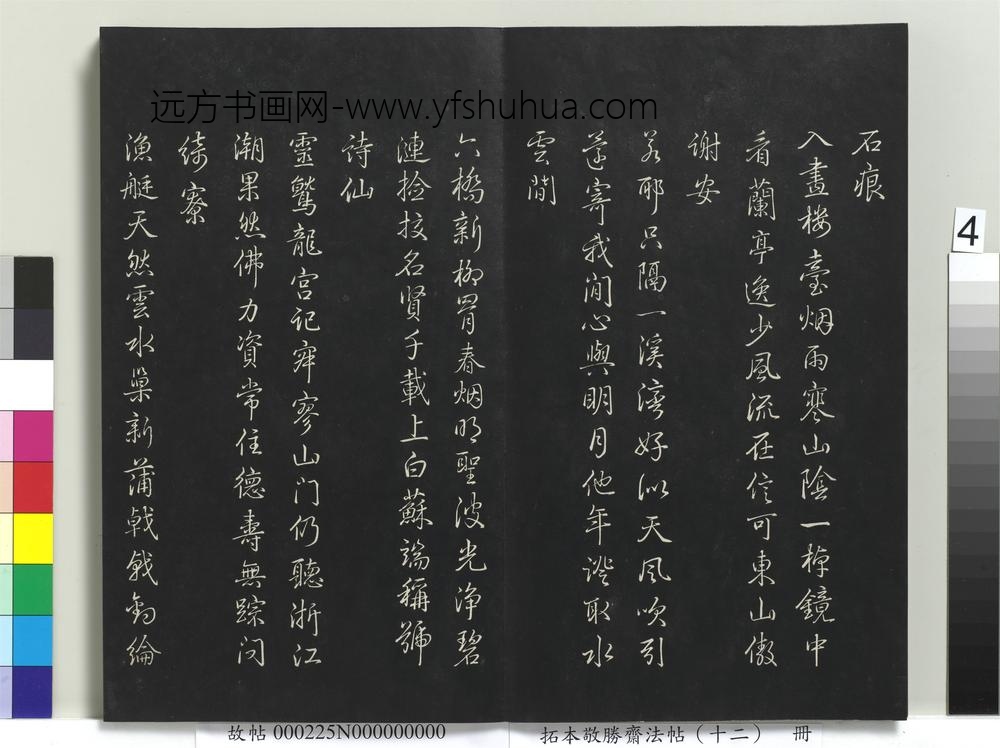 远方书画网-www.yfshuhua.com
石痕
入畫樓臺烟雨寒山陰一棹鏡中
看蘭亭逸少風流在信可東山傲
謝安
若耶只隔一溪灣好似天風吹引
還寄我閒心與明月他年證取水
雲間
六橋新柳罥春烟明聖波光淨碧
漣撿挍名賢千載上白蘇端稱號
詩仙
靈鷲龍宮記寂寥山门仍聽浙江
潮果然佛力資常住德壽無踪问
綺寮
漁艇天然雲水巢新蒲戟戟釣綸
4
故帖 000225N000000000
拓本敬勝齋法帖（十二） 冊